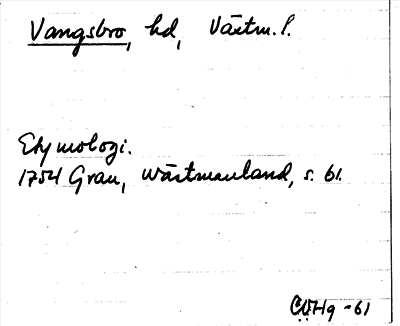 Vangsbro, hd, Västm. l.
Etymologi.
1754 Grau, Wästmanland, s. 61.
-61